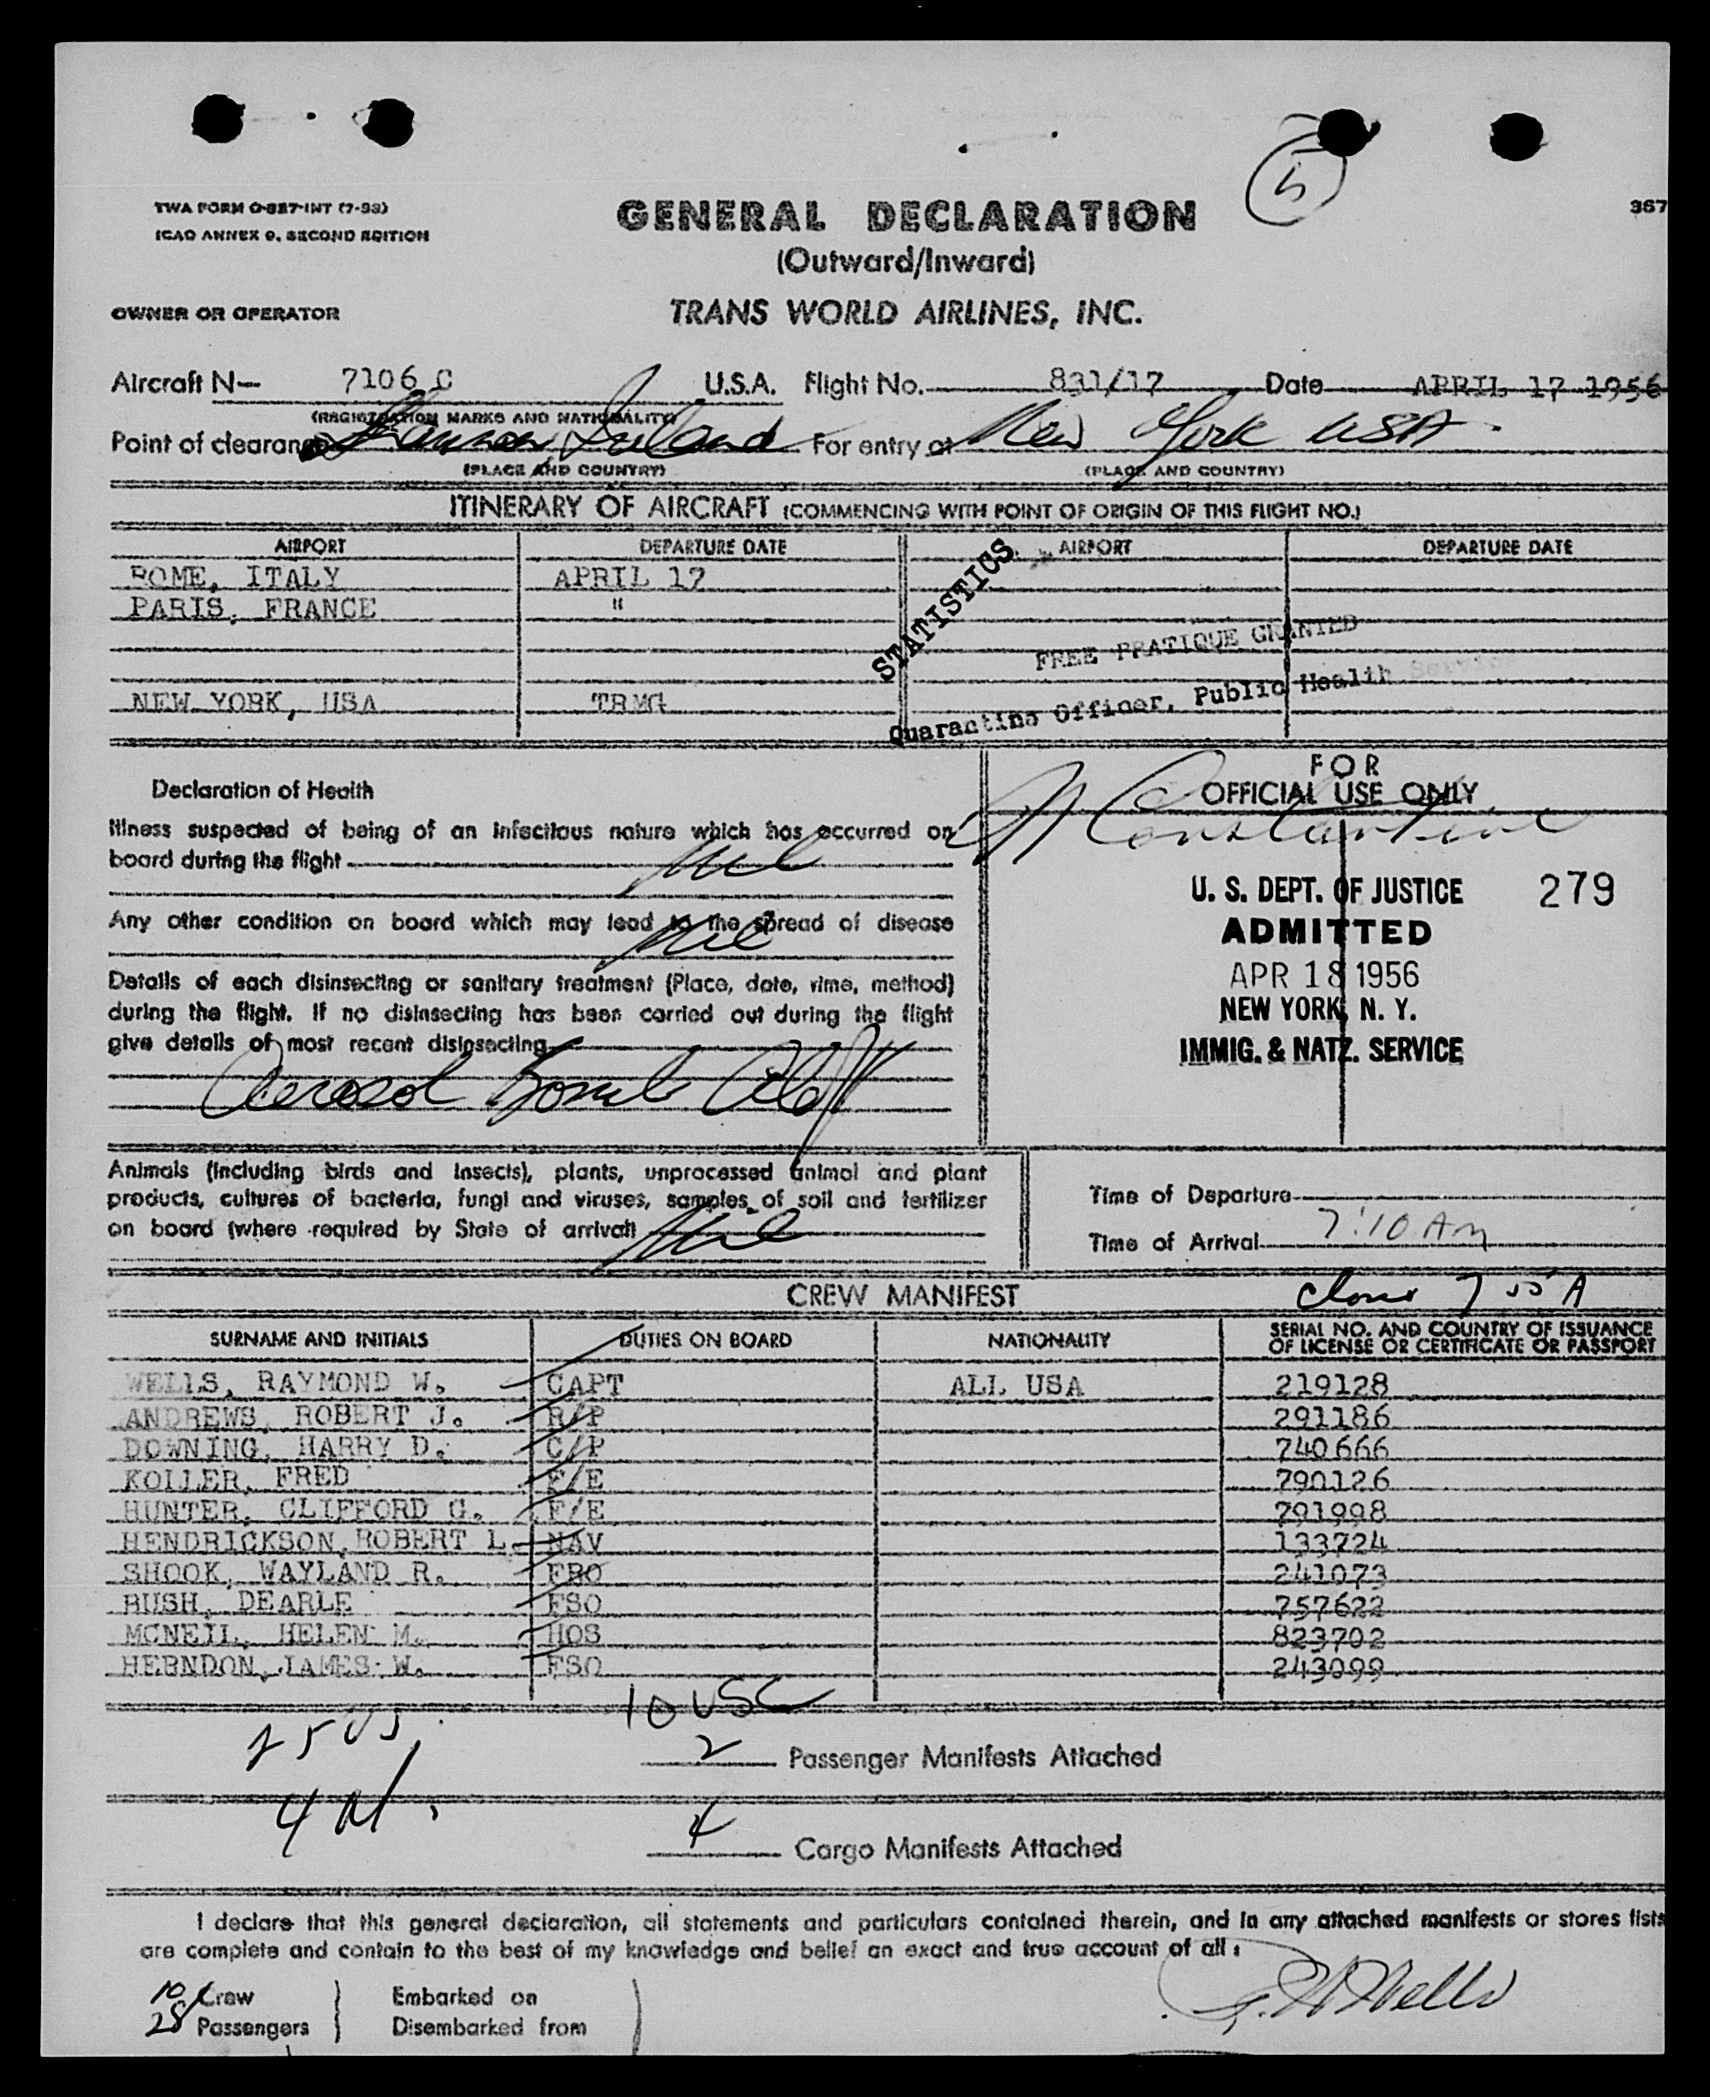 5
TWA FORM O-827-INT (7-53)
ICAO ANNEX 9, SECOND EDITION
GENERAL DECLARATION
367
(Outward/Inward)
OWNER OR OPERATOR
TRANS WORLD AIRLINES, INC.
Aircraft N— 7106 C U.S.A. Flight No. 831/17 Date APRIL 17 1956
(REGISTRATION MARKS AND NATIONALITY)
Point of clearance Shannon Ireland For entry at New York USA
(PLACE AND COUNTRY) (PLACE AND COUNTRY)
ITINERARY OF AIRCRAFT (COMMENCING WITH POINT OF ORIGIN OF THIS FLIGHT NO.)
AIRPORT DEPARTURE DATE AIRPORT DEPARTURE DATE
ROME, ITALY APRIL 17
PARIS, FRANCE "
NEW YORK, USA TRMG
STATISTICS
FREE PRATIQUE GRANTED
Quarantine Officer, Public Health Service
Declaration of Health
FOR
OFFICIAL USE ONLY
Constantine
Illness suspected of being of an infectious nature which has occurred on
board during the flight nil
Any other condition on board which may lead to the spread of disease
nil
Details of each disinsecting or sanitary treatment (Place, date, time, method)
during the flight. If no disinsecting has been carried out during the flight
give details of most recent disinsecting
Aerosol Bomb
U. S. DEPT. OF JUSTICE 279
ADMITTED
APR 18 1956
NEW YORK, N. Y.
IMMIG. & NATZ. SERVICE
Animals (including birds and insects), plants, unprocessed animal and plant
products, cultures of bacteria, fungi and viruses, samples of soil and fertilizer
on board (where required by State of arrival) nil
Time of Departure
Time of Arrival 7:10 AM
CREW MANIFEST
7 55 A
SURNAME AND INITIALS DUTIES ON BOARD NATIONALITY SERIAL NO. AND COUNTRY OF ISSUANCE
OF LICENSE OR CERTIFICATE OR PASSPORT
WELLS, RAYMOND W. CAPT ALL USA 219128
ANDREWS, ROBERT J. R/P 291186
DOWNING, HARRY D. C/P 740666
KOLLER, FRED F/E 790126
HUNTER, CLIFFORD G. F/E 791998
HENDRICKSON, ROBERT L. NAV 133724
SHOOK, WAYLAND R. FRO 241073
BUSH, DEARLE FSO 757622
MCNEIL, HELEN M. HOS 823702
HERNDON, JAMES W. FSO 243099
10 USC
25 US
2 Passenger Manifests Attached
4
4 Cargo Manifests Attached
I declare that this general declaration, all statements and particulars contained therein, and in any attached manifests or stores lists
are complete and contain to the best of my knowledge and belief an exact and true account of all:
10 Crew
28 Passengers
Embarked on
Disembarked from
R. W. Wells